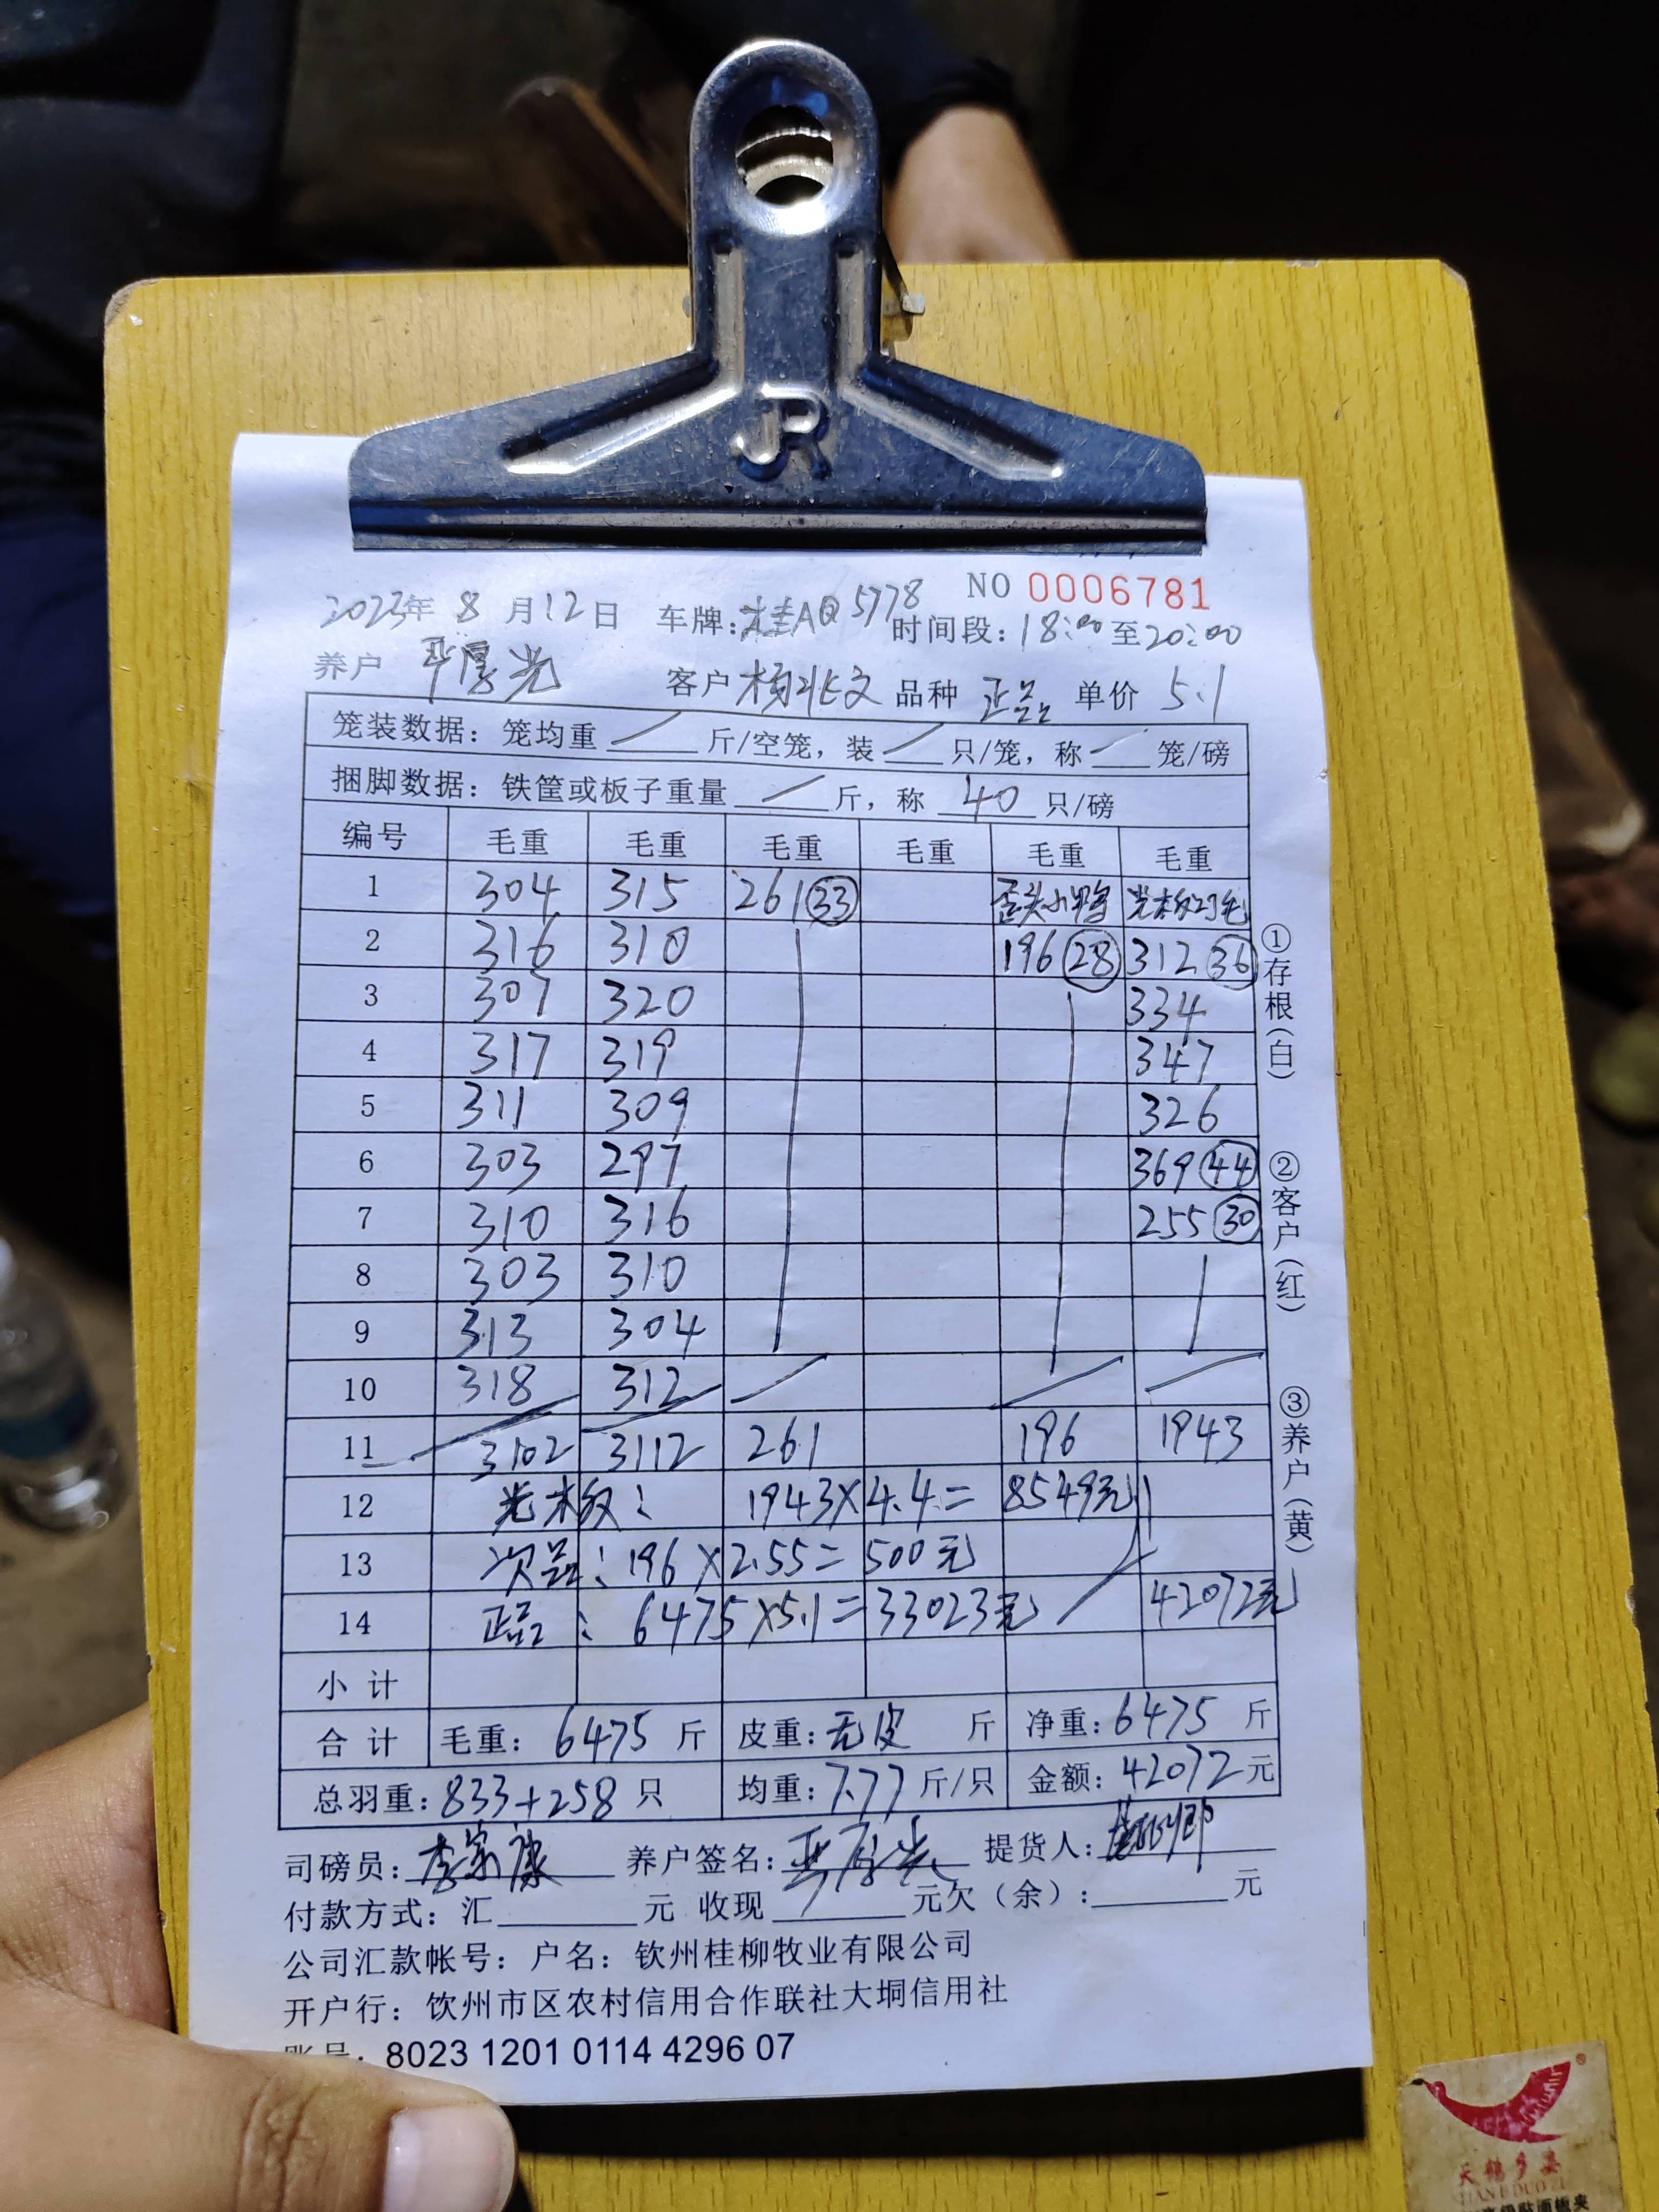 JR
NO 0006781
2023年 8 月12日 车牌:桂AQ5778 时间段:18:00至20:00
养户 严厚光 客户 杨兆文 品种 正品 单价 5.1
笼装数据: 笼均重 / 斤/空笼, 装 / 只/笼, 称 / 笼/磅
捆脚数据: 铁筐或板子重量 / 斤, 称 40 只/磅
编号 毛重 毛重 毛重 毛重 毛重 毛重
1 304 315 261 33 歪头小鸭 光板刁毛
2 316 310 196 28 312 36
3 307 320 334
4 317 319 347
5 311 309 326
6 303 297 369 44
7 310 316 255 30
8 303 310
9 313 304
10 318 312
11 3102 3112 261 196 1943
12 光板: 1943×4.4= 8549元
13 次品: 196×2.55=500元
14 正品: 6475×5.1=33023元 42072元
小计
合计 毛重: 6475 斤 皮重:无皮 斤 净重:6475 斤
总羽重:833+258 只 均重:7.77 斤/只 金额:42072元
司磅员:李家康 养户签名:严厚光 提货人:
付款方式: 汇 元 收现 元欠(余): 元
公司汇款帐号: 户名: 钦州桂柳牧业有限公司
开户行: 饮州市区农村信用合作联社大垌信用社
账号: 8023 1201 0114 4296 07
①存根(白)
②客户(红)
③养户(黄)
天鹅多姿
TIANEDUOZI